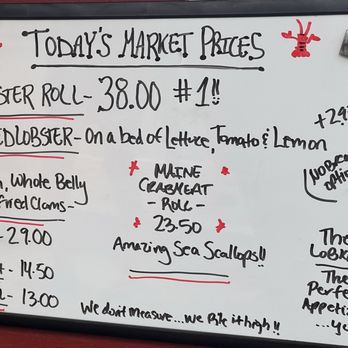 TODAY'S MARKET PRICES
STER ROLL- 38.00 #1!!
EDLOBSTER- On a bed of Lettuce, Tomato & Lemon
+2.9
NO BREA
Optio
, Whole Belly
Fried Clams-
- 29.00
- 14.50
- 13.00
MAINE
CRABMEAT
- ROLL -
23.50
Amazing Sea Scallops!!
The
LOBS
The
Perfe
Appetiz
...yo
We don't Measure...We Pile it high!!